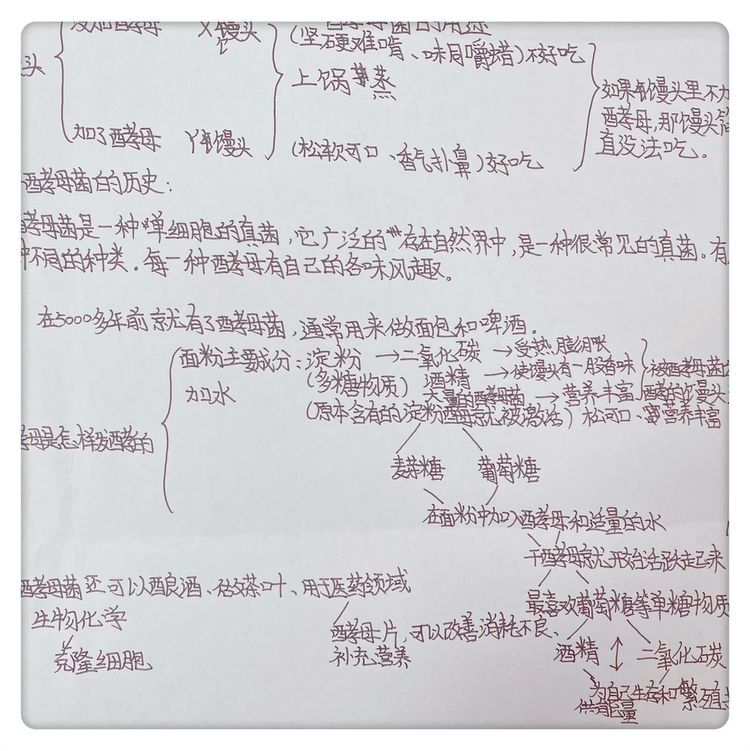 没加酵母 X馒头
酵母菌的用途
(坚硬难啃、味同嚼蜡)不好吃
头
上锅蒸
加了酵母 馒头
(松软可口、香气扑鼻)好吃
如果馒头里不加
酵母,那馒头简
直没法吃。
酵母菌的历史:
酵母菌是一种单细胞的真菌,它广泛的存在自然界中,是一种很常见的真菌。有
不同的种类.每一种酵母有自己的各味风趣。
在5000多年前就有了酵母菌,通常用来做面包和啤酒.
酵母是怎样发酵的
面粉主要成分:淀粉 →二氧化碳 →受热,膨胀
(多糖物质) 酒精 →使馒头有一股香味
加水 大量的酵母菌 →营养丰富
(原本含有的淀粉酶就被激活)
被酵母菌
酵的馒头
松可口、营养丰富
麦芽糖 葡萄糖
在面粉中加入酵母和适量的水
干酵母就开始活跃起来
最喜欢葡萄糖等单糖物质
酒精 ↕ 二氧化碳
为自己生存和繁殖
供能量
酵母菌还可以酿酒、做茶叶、用于医药领域
生物化学
克隆细胞
酵母片,可以改善消耗不良、
补充营养